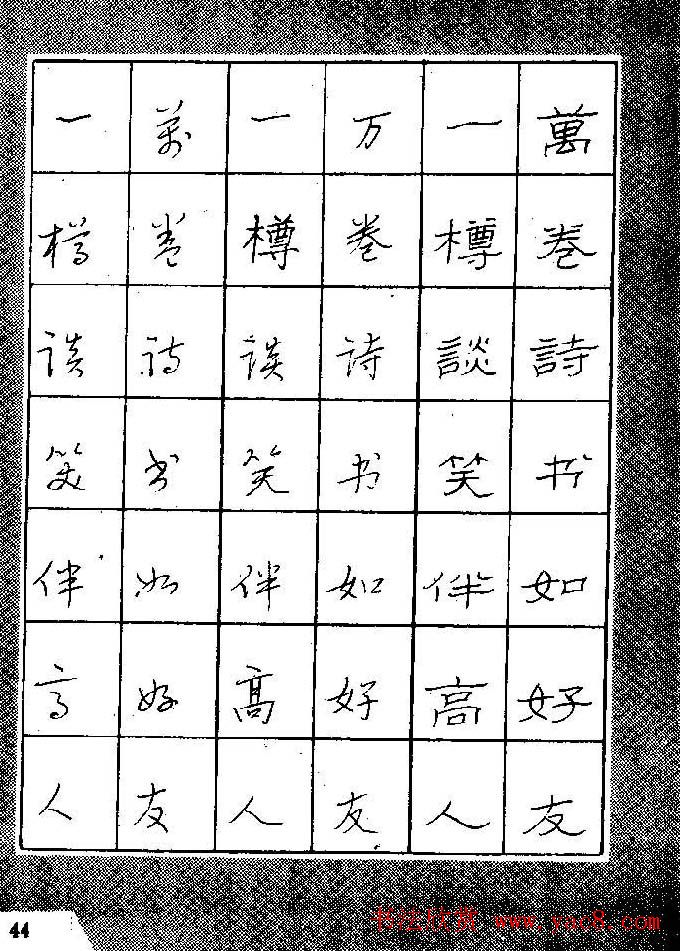 萬卷詩书如好友
一樽談笑伴高人
万卷诗书如好友
一樽谈笑伴髙人
萬卷诗书如好友
一樽谈笑伴高人
44
书法欣赏 www.yac8.com